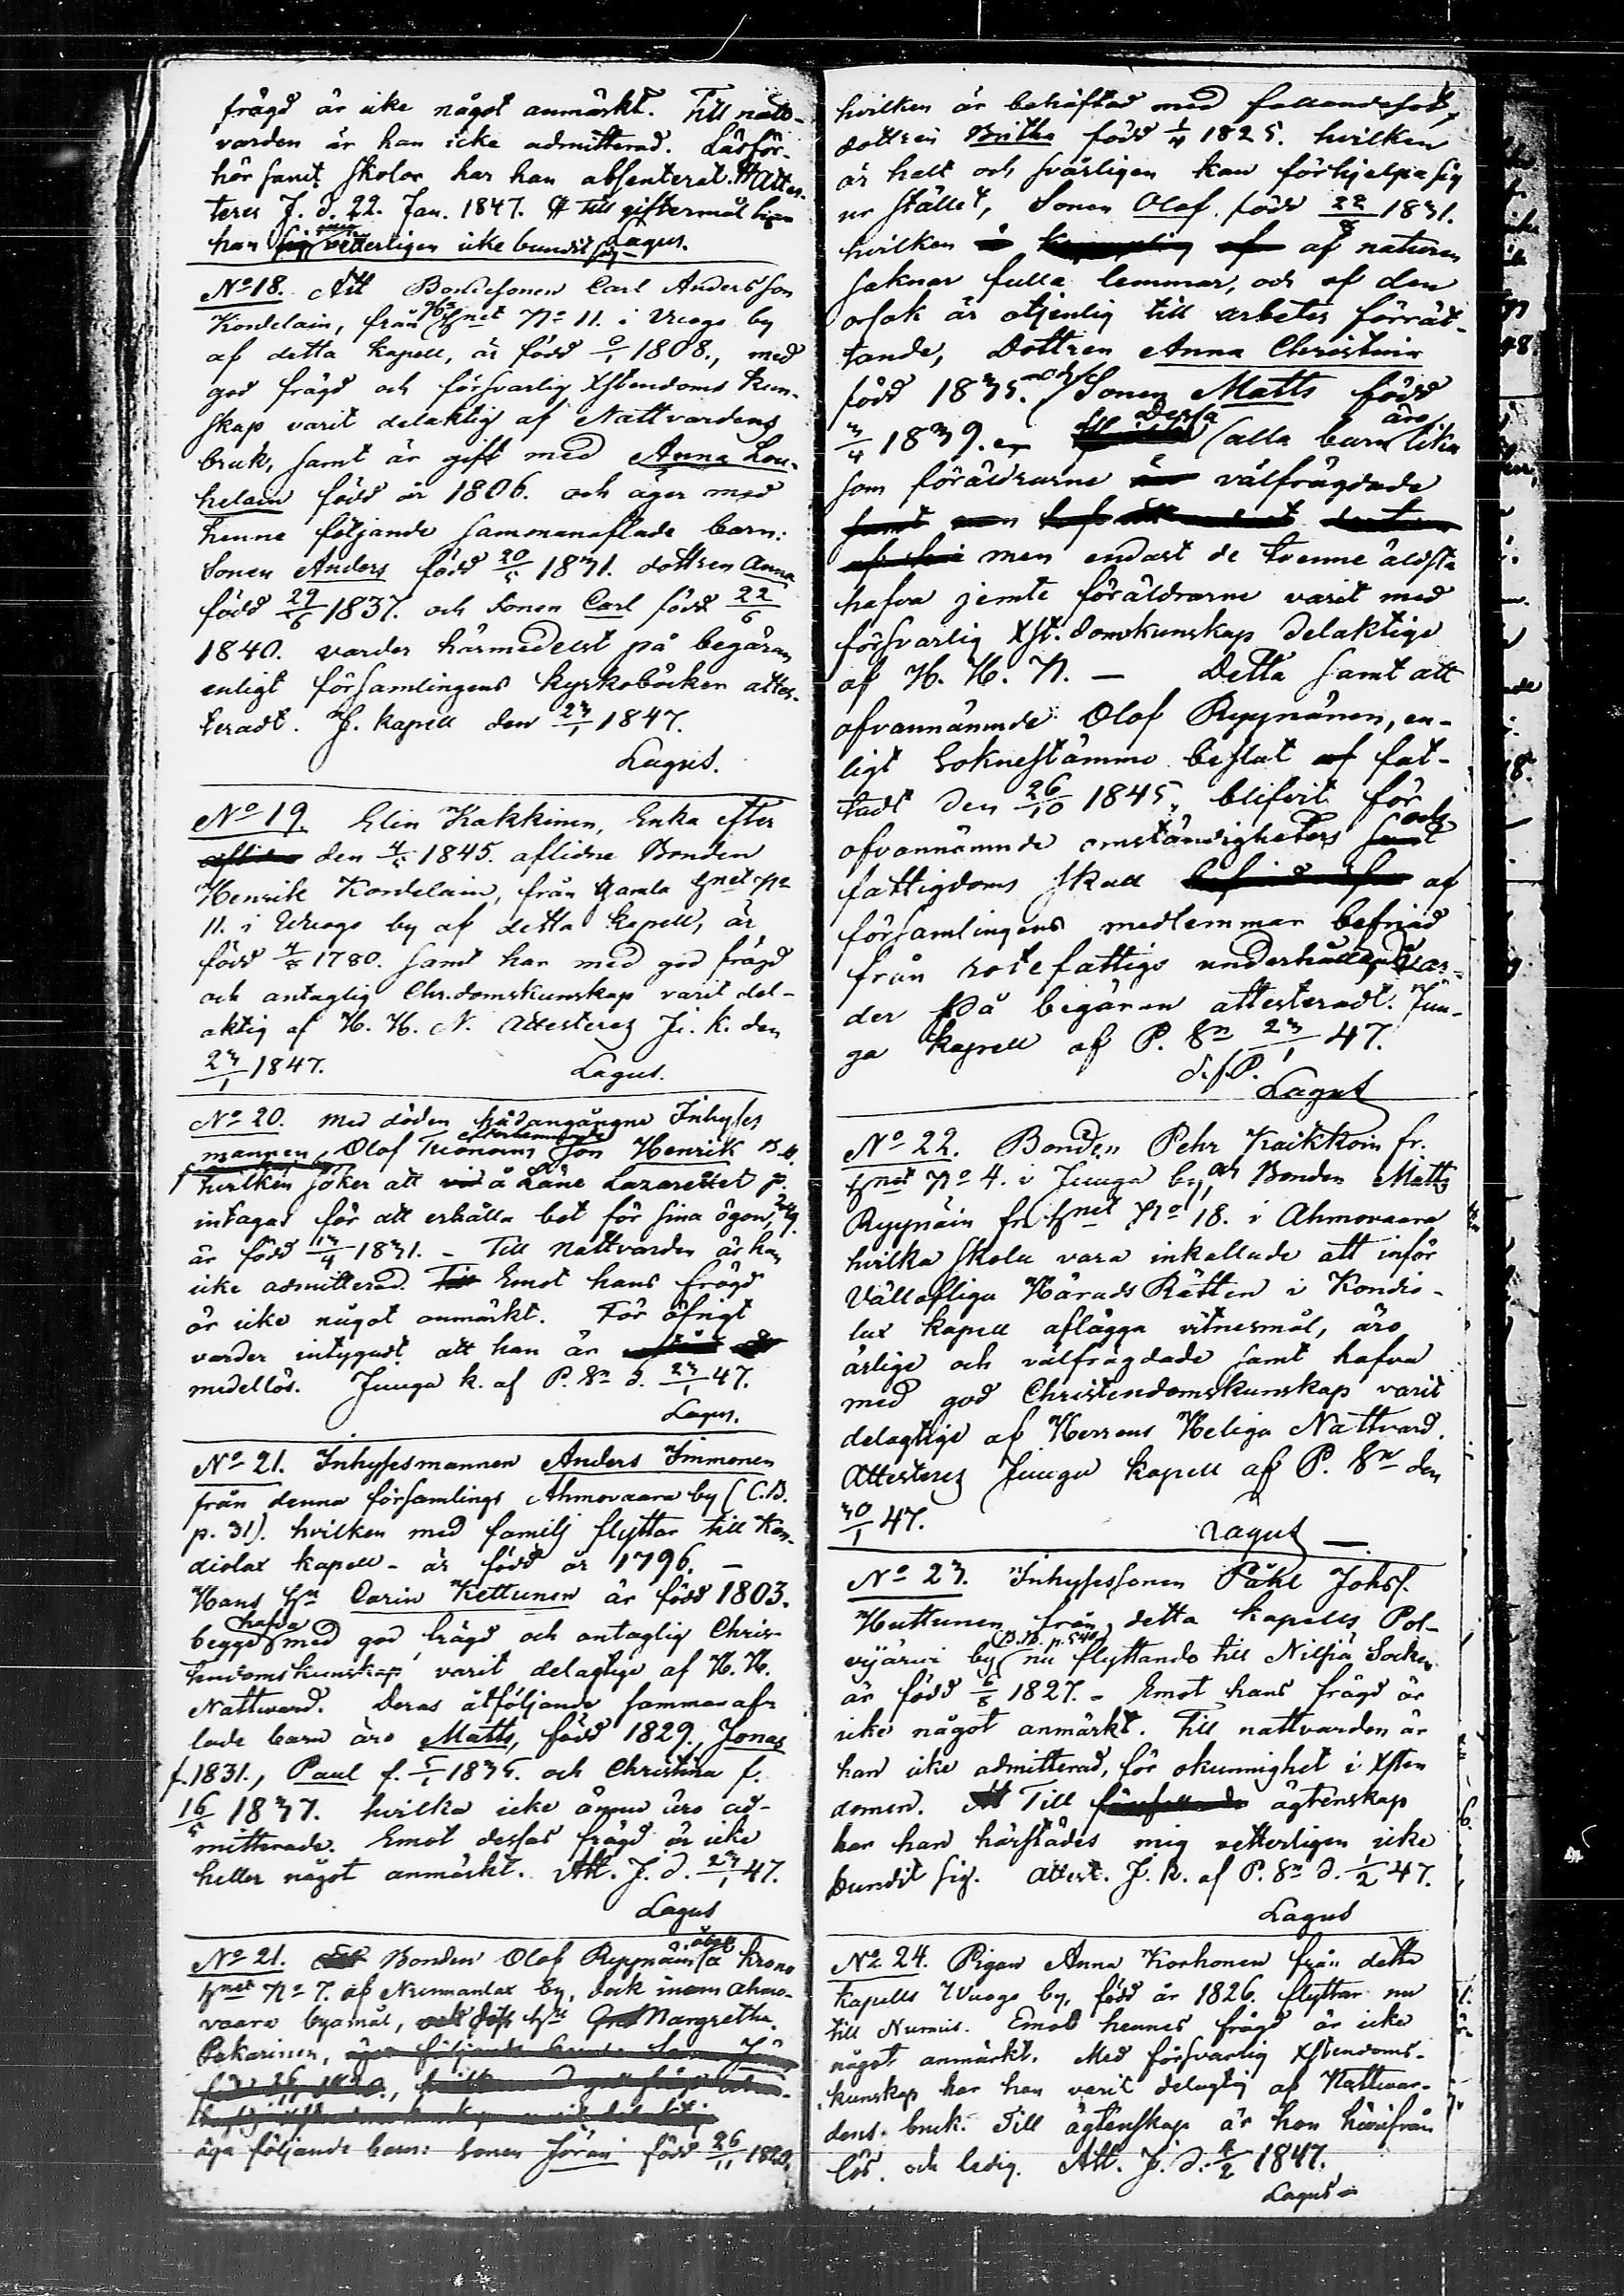 frägd är icke något anmärkt. Till natt-
varden är han icke admitterad. Läsför-
hör samt skolor har han absenterat. Attes-
teres J. d. 22. Jan. 1847. # Till giftermål
han vetterligen icke bundit sig Lagus.
No 18. Att Bondesonen Carl Andersson
Kordelain, från No 11. i Wuogo by
af detta kapell, är född 1808., med
god frägd och försvarlig Xstendoms kun-
skap varit delaktig af Nattvardens
bruk, samt är gift med Anna Lou-
helain född år 1806. och äger med
henne följande sammanaflade barn:
Sonen Anders född 20/5 1831. dottren Anna
född 29/6 1837. och Sonen Carl född 22/6
1840. varder härmedelst på begäran
enligt församlingens kyrkoböcker attes-
teradt. J. kapell den 23/1 1847.
Lagus.
No 19. Elin Kakkinen, Enka efter
den 4/5 1845. aflidne Bonden
Henrik Kordelain, från Gamla Hnet No
11. i Wuogo by af detta kapell, är
född 4/8 1780. samt har med god frägd
och antaglig Chr.domskunskap varit del-
aktig af H. H. N. Attesteres J. k. den
23/1 1847. Lagus.
No 20. Med döden hädangångne Inhyses
mannen Olof efterlemnade Son Henrik
hvilken söker att å Läne Lazarettet
intagas för att erhålla bot för sina ögon,
är född 13/4 1831. - Till Nattvarden är han
icke admitterad. Emot hans frägd
är icke något anmärkt. För öfrigt
varder intygadt att han är
medellös. Juuga k. af P. Sn d. 23/1 47.
Lagus.
No 21. Inhysesmannen Anders Immonen
från denna församlings Ahmovaara by (C.B.
p. 31). hvilken med familj flyttar till Kon-
diolax kapell - är född år 1796. —
Hans Hu Carin Kettunen är född 1803.
begge hafva med god frägd och antaglig Chris-
tendomskunskap varit delagtige af H. H.
Nattvard. Deras åtföljande sammanaf-
lade barn äro Matts, född 1829., Jonas
f. 1831., Paul f. 5/1 1835. och Christina f.
16/5 1837. hvilka icke ännu äro ad-
mitterade. Emot dessas frägd är icke
heller något anmärkt. Att. J. d. 23/1 47.
Lagus
No 21. Bonden Olof Ryynäin å Krono
Hnet No 7. af Nurmanlax by, dock inom Ahmo-
vaara byamål, Hu Margretha
Pekarinen,
äga följande barn: Sonen Jöran född 26/11 1820.
hvilken är behäftad med fallandesot,
dottren Britha född 1/4 1825. hvilken
är halt och svårligen kan förhjelpa sig
ur stället, Sonen Olof född 22/8 1831.
hvilken af naturen
saknar fulla lemmar, och af den
orsak är otjenlig till arbetes förrät-
tande, Dottren Anna Christina
född 1835. och Sonen Matts född
3/4 1839. Dessa alla barn äro lika
som föräldrarne välfrägdade
men endast de tvenne äldsta
hafva jemte föräldrarne varit med
försvarlig Xst.domskunskap delaktige
af H. H. N. — Detta samt att
ofvannämnde Olof Ryynänen, en-
ligt Sokneståmmo beslut fat-
tadt den 26/10 1845, blifvit för
ofvannämnde omständigheters och
fattigdoms skull af
församlingens medlemmar befriad
från rotefattigs underhållande var-
der på begäran attesteradt. Juu-
ga kapell af P. Sn 23/1 47.
Lagus
No 22. Bonden Pehr Kaikkoin fr.
Hnet No 4. i Juuga by, och Bonden Matts
Ryynäin fr. Hnet No 18. i Ahmovaara
hvilka skola vara inkallade att inför
Vällofliga Härads Rätten i Kondio-
lax kapell aflägga vitnesmål, äro
ärlige och välfrägdade samt hafva
med god Christendomskunskap varit
delagtige af Herrans Heliga Nattvard.
Attesteres Juuga kapell af P. Sn den
30/1 47. Lagus —
No 23. Inhysessonen Påhl Johss.
Huttunen från detta kapells Pol-
vijärvi by p. 540, nu flyttande till Nilsiä Socken
är född 6/8 1827. - Emot hans frägd är
icke något anmärkt. Till nattvarden är
han icke admitterad, för okunnighet i Xsten
domen. Till ägtenskap
har han härstädes mig vetterligen icke
bundit sig. Attest. J. k. af P. Sn d. 1/2 47.
Lagus
No 24. Pigan Anna Korhonen från detta
kapells Wuogo by, född år 1826. flyttar nu
till Nurmis. Emot hennes frägd är icke
något anmärkt. Med försvarlig Xstendoms-
kunskap har hon varit delagtig af Nattvar-
dens bruk. Till ägtenskap är hon härifrån
lös och ledig. Att. J. d. 4/2 1847.
Lagus